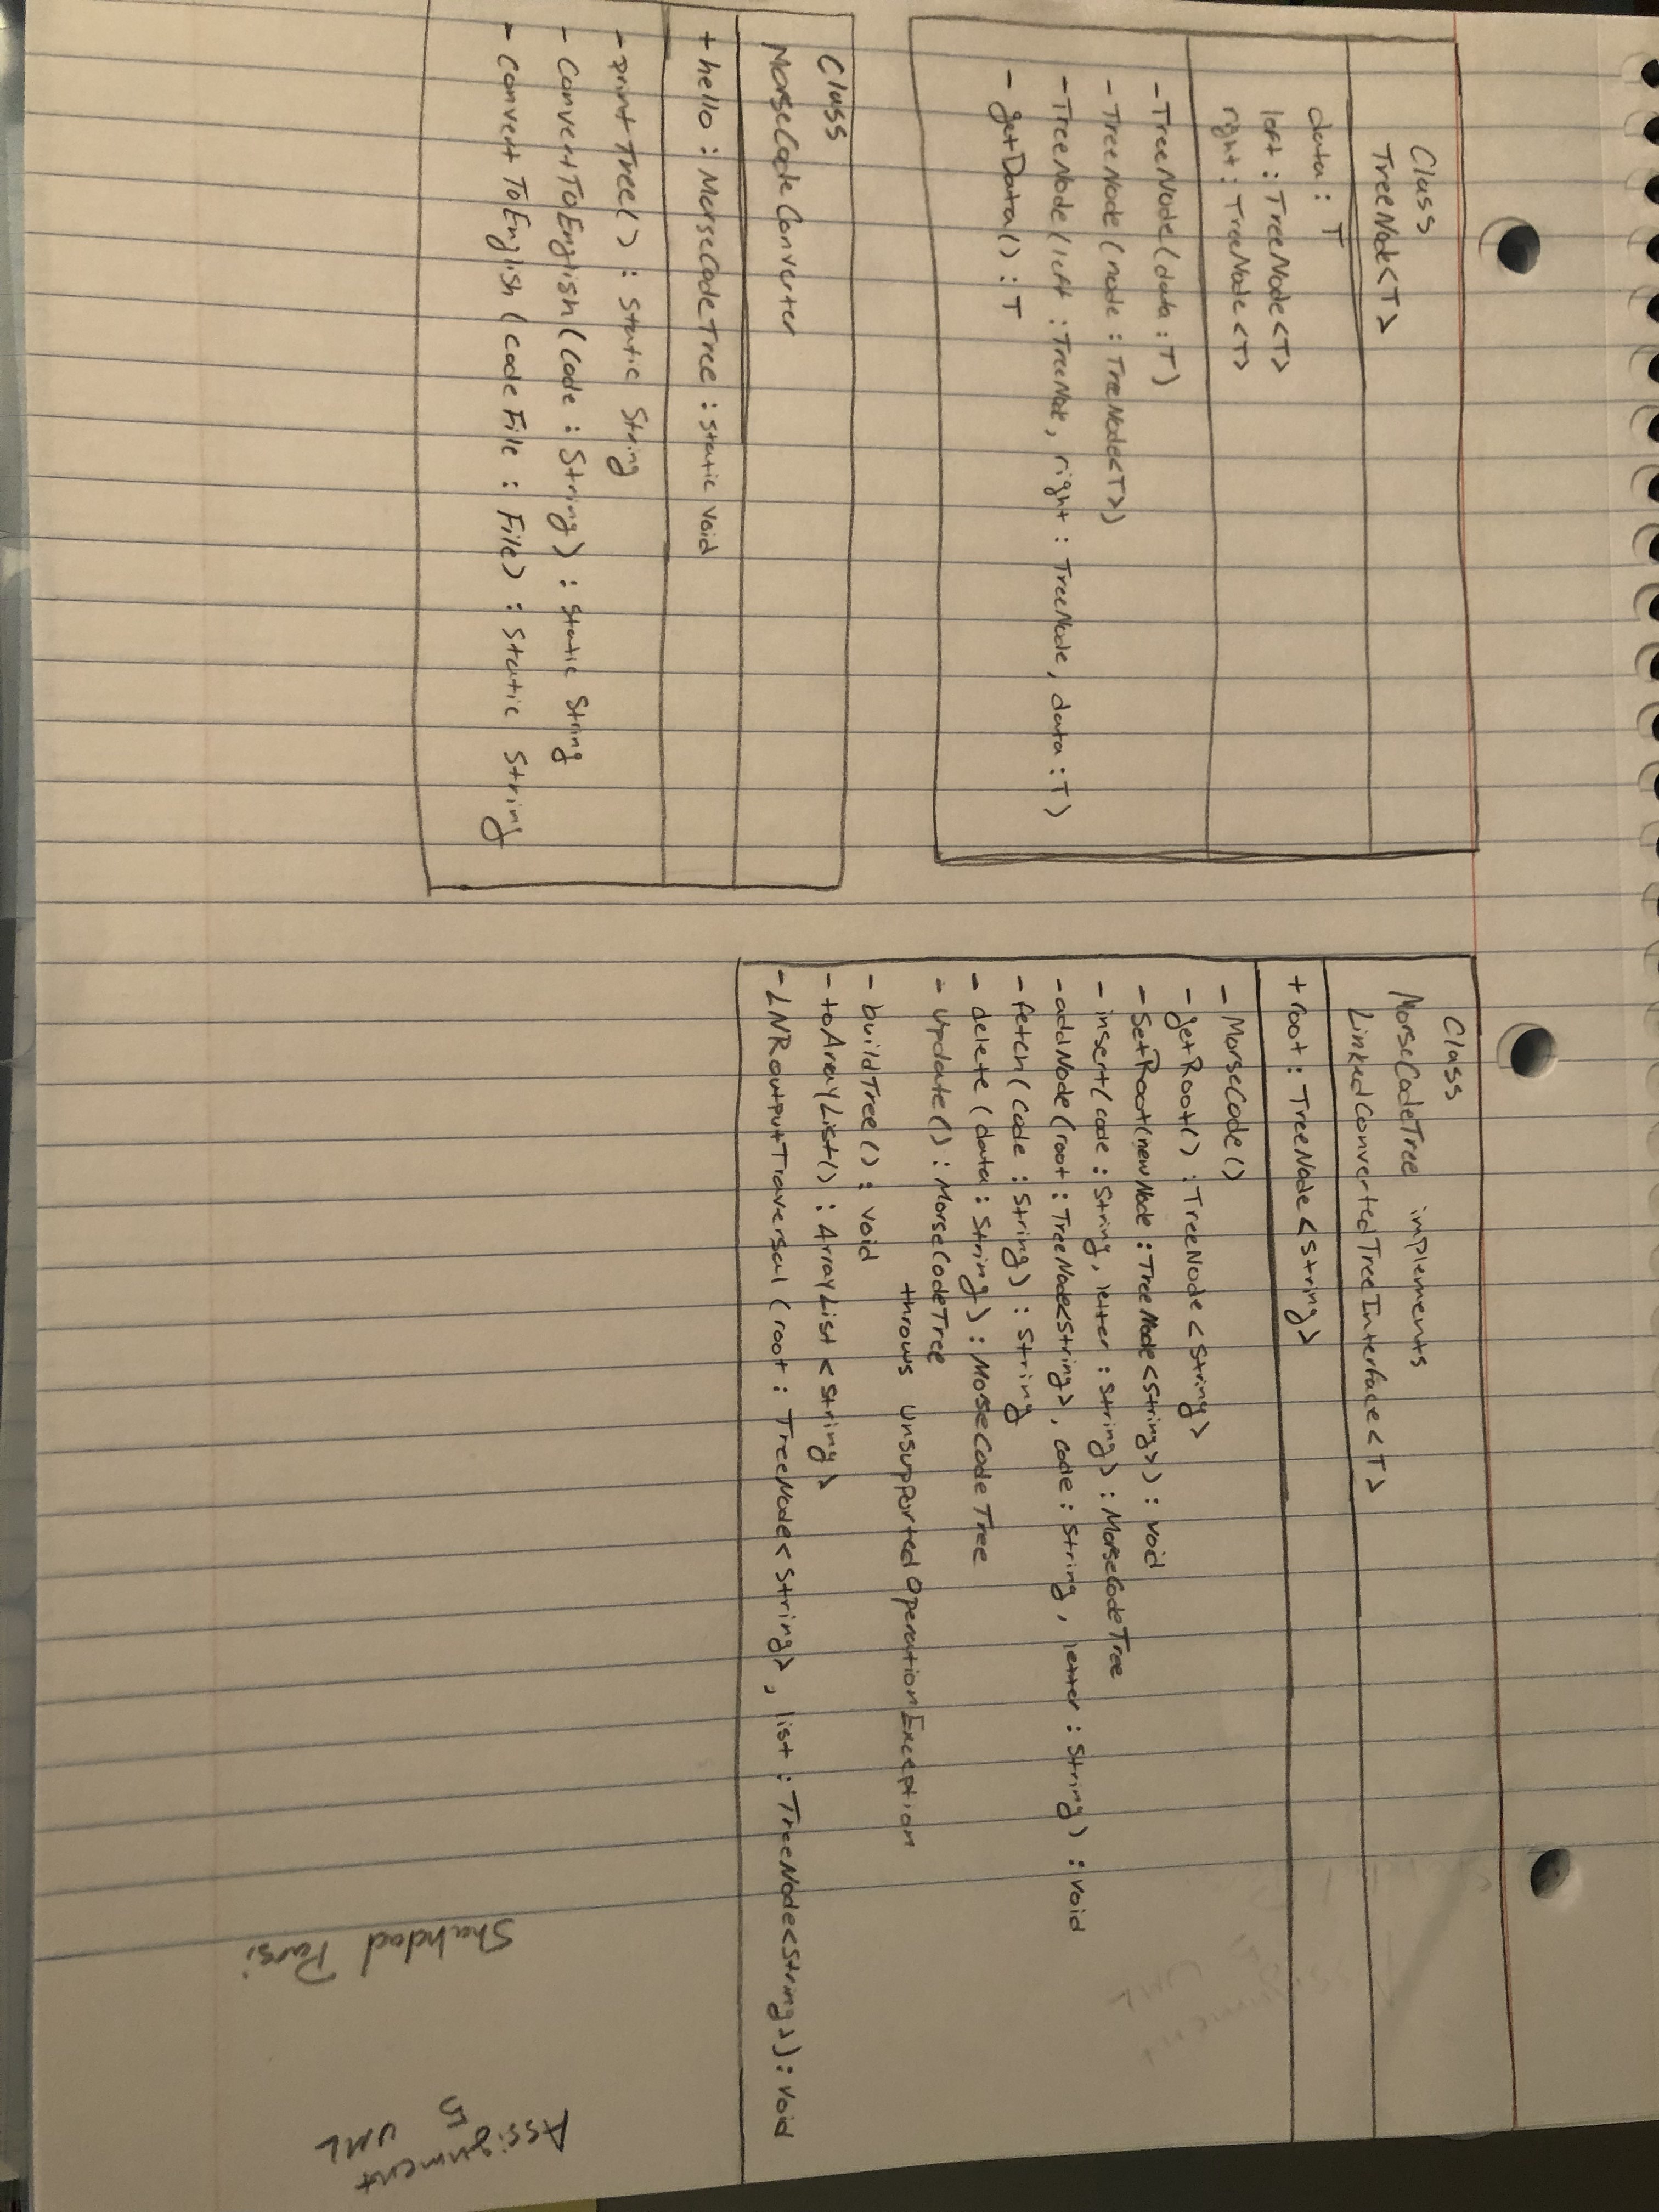 Class
TreeNode<T>
data : T
left : TreeNode<T>
right : TreeNode<T>
- TreeNode(data : T)
- TreeNode(node : TreeNode<T>)
- TreeNode(left : TreeNode, right : TreeNode, data : T)
- getData() : T
Class
MorseCodeConverter
+ hello : MorseCodeTree : static void
- printTree() : static String
- ConvertToEnglish(code : String) : static String
- ConvertToEnglish(codeFile : File) : static String
Class
MorseCodeTree implements
LinkedConvertedTreeInterface<T>
+ root : TreeNode<String>
- MorseCode()
- getRoot() : TreeNode<String>
- SetRoot(newNode : TreeNode<String>) : void
- insert(code : String, letter : String) : MorseCodeTree
- addNode(root : TreeNode<String>, code : String, letter : String) : void
- fetch(code : String) : String
- delete(data : String) : MorseCodeTree
- update() : MorseCodeTree
throws UnsupportedOperationException
- buildTree() : void
- toArrayList() : ArrayList<String>
- LNRoutputTraversal(root : TreeNode<String>, list : TreeNode<String>) : void
Shahdad Parsi
Assignment
5 UML
UML